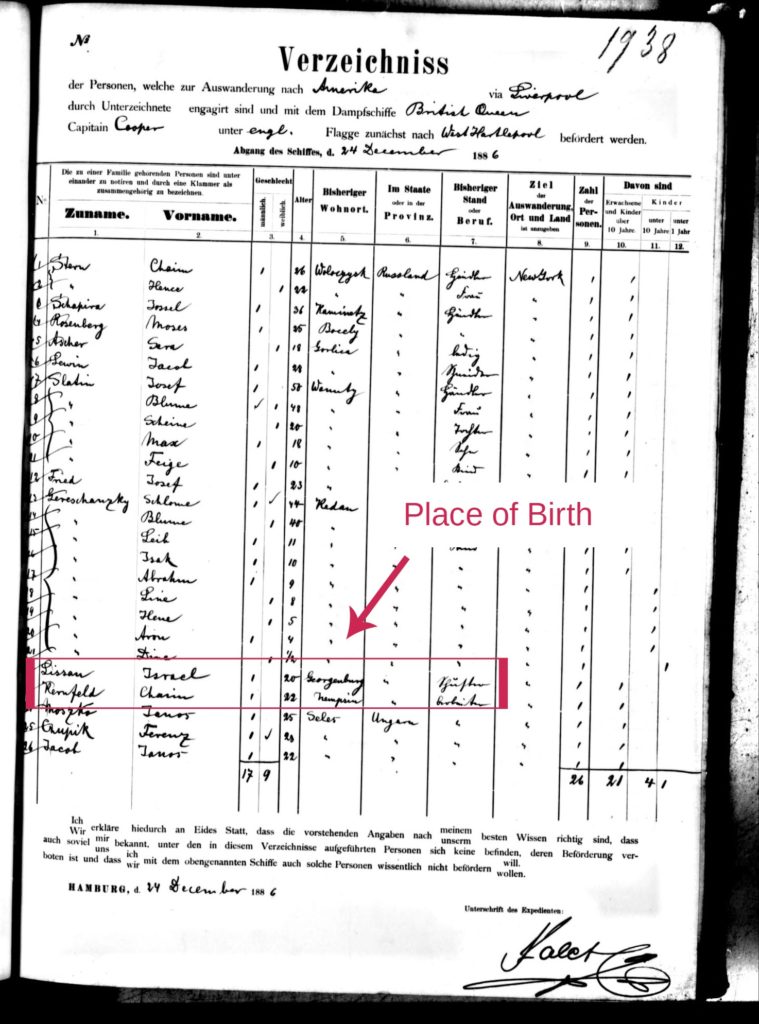 No
1938
Verzeichniss
der Personen, welche zur Auswanderung nach Amerika via Liverpool
durch Unterzeichnete engagirt sind und mit dem Dampfschiffe British Queen
Capitain Cooper unter engl. Flagge zunächst nach West Hartlepool befördert werden.
Abgang des Schiffes, d. 24 December 1886
Die zu einer Familie gehörenden Personen sind unter
einander zu notiren und durch eine Klammer als
zusammengehörig zu bezeichnen.
Zuname. Vorname. Geschlecht männlich. weiblich. Alter Bisheriger Wohnort. Im Staate oder in der Provinz. Bisheriger Stand oder Beruf. Ziel der Auswanderung, Ort und Land ist anzugeben Zahl der Personen. Davon sind Erwachsene und Kinder über 10 Jahre. Kinder unter 10 Jahre unter 1 Jahr
1. 2. 3. 4. 5. 6. 7. 8. 9. 10. 11. 12.
1 Stern Chaim 1 26 Russland Händler New York 1 1
" Hence 1 22 " " Frau " 1 1
Schapira Jossel 1 36 Kaminetz " Händler " 1 1
Rosenberg Moses 1 25 " " " 1 1
5 Ascher Sara 1 18 Gorlice " ledig " 1 1
6 Lewin Jacob 1 28 " " " 1 1
7 Slatin Josef 1 Händler " 1 1
8 " Blume 1 48 " " Frau " 1 1
9 " Scheine 1 20 " " Tochter " 1 1
10 " Max 1 18 " " Sohn " 1 1
11 " Feige 1 10 " " Kind " 1 1
12 Fried Josef 1 23 "
13 Gereschanzky Schlome 1 44 Radan
14 " Blume 1 40 "
Place of Birth
15 " Leib 1 11 "
16 " Isak 1 10 " " " " 1 1
17 " Abrahm 1 9 " " " " 1 1
18 " Line 1 8 " " " " 1 1
19 " Hene 1 5 " " " " 1 1
20 " Aron 1 4 " " " " 1 1
21 " Dine 1 1/2 " " " " 1 1
Lissan Israel 1 20 Georgenburg " " 1 1
Kernfeld Chaim 1 22 " " 1 1
Moszko Janos 1 25 Seles Ungarn " " 1 1
25 Czupik Ferenz 1 " " " " 1 1
26 Jacob Janos 1 22 " " " " 1 1
17 9 26 21 4 1
Ich Wir erkläre hiedurch an Eides Statt, dass die vorstehenden Angaben nach meinem unserm besten Wissen richtig sind, dass
auch soviel mir uns bekannt, unter den in diesem Verzeichnisse aufgeführten Personen sich keine befinden, deren Beförderung ver-
boten ist und dass ich wir mit dem obengenannten Schiffe auch solche Personen wissentlich nicht befördern will. wollen.
HAMBURG, d. 24 December 1886
Unterschrift des Expedienten: